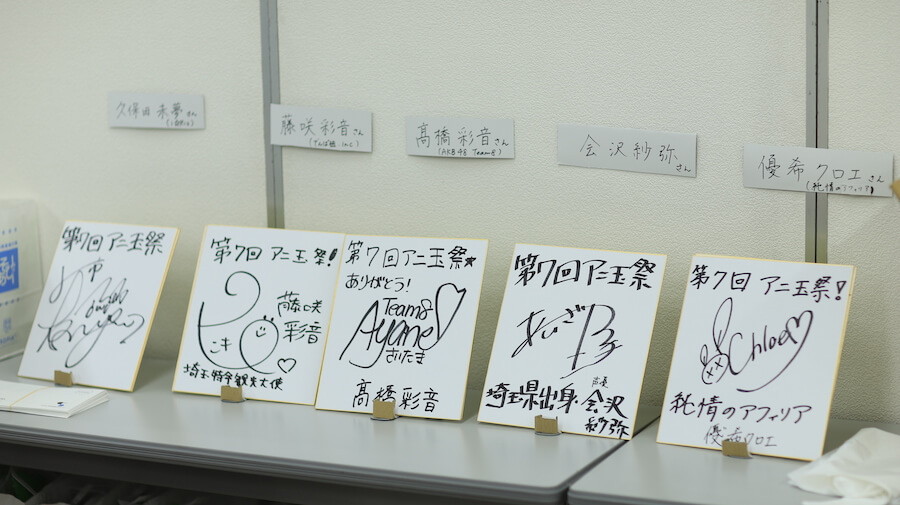 久保田 未夢さん
藤咲 彩音さん
(でんぱ組.inc)
髙橋 彩音さん
(AKB48 Team8)
会沢 紗弥さん
優希クロエさん
(純情のアフィリア)
第7回アニ玉祭
第7回 アニ玉祭!
藤咲
彩音
埼玉特命観光大使
第7回アニ玉祭★
ありがとう!
Team8
Ayane
さいたま
髙橋彩音
第7回アニ玉祭
埼玉県出身
声優
会沢
紗弥
第7回 アニ玉祭!
Chloe
純情のアフィリア
優希クロエ